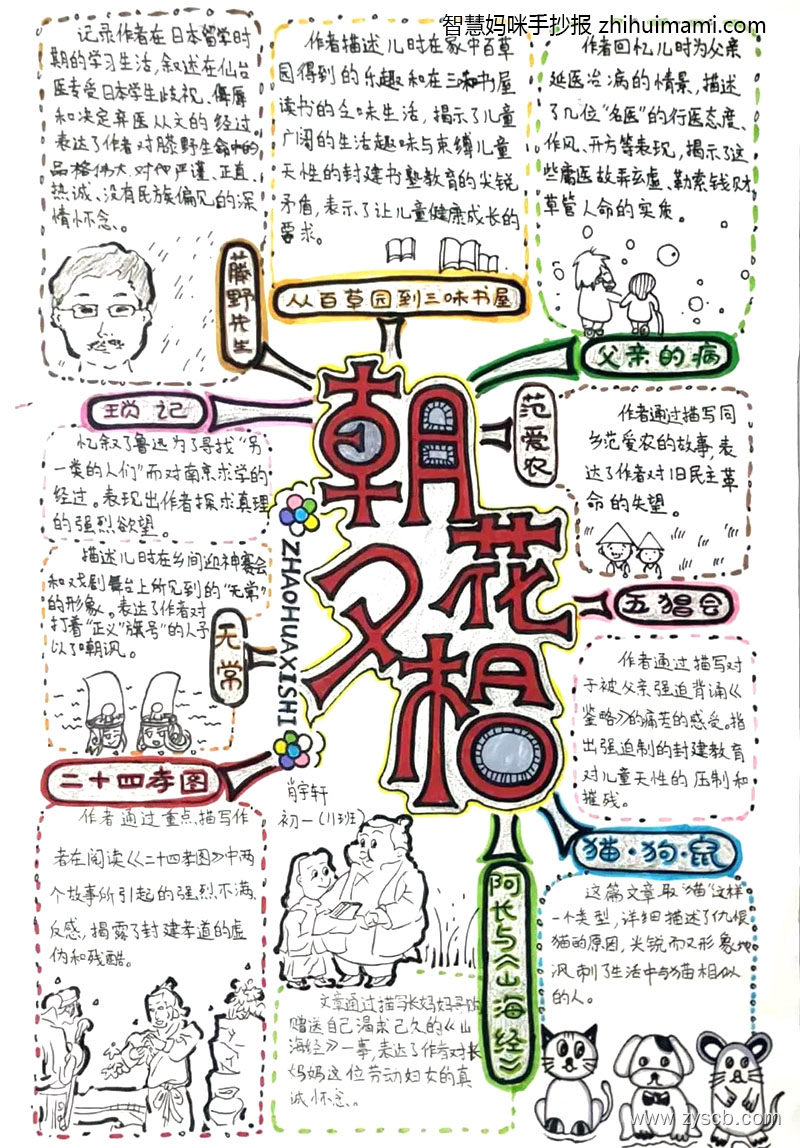 智慧妈咪手抄报 zhihuimami.com
记录作者在日本留学时
期的学习生活，叙述在仙台
医专受日本学生歧视、侮辱
和决定弃医从文的经过
表达了作者对滕野先生
品格伟大、对他严谨、正直、
热诚、没有民族偏见的深
情怀念。
藤野先生
作者描述儿时在家中百草
园得到的乐趣和在三味书屋
读书的乏味生活，揭示了儿童
广阔的生活趣味与束缚儿童
天性的封建书塾教育的尖锐
矛盾，表示了让儿童健康成长的
要求。
从百草园到三味书屋
作者回忆儿时为父亲
延医治病的情景，描述
了几位“名医”的行医态度、
作风、开方等表现，揭示了这
些庸医故弄玄虚、勒索钱财、
草管人命的实质。
父亲的病
琐记
忆叙了鲁迅为了寻找“另
一类的人们”而对南京求学的
经过。表现出作者探求真理
的强烈欲望。
范爱农
作者通过描写同
乡范爱农的故事，表
达了作者对旧民主革
命的失望。
朝花夕拾
ZHAOHUAXISHI
描述儿时在乡间迎神赛会
和戏剧舞台上所见到的“无常”
的形象。表达了作者对
打着“正义”旗号”的人予
以了嘲讽。
无常
五猖会
作者通过描写对
于被父亲强迫背诵《
鉴略》的痛苦的感受。指
出强迫制的封建教育
对儿童天性的压制和
摧残。
二十四孝图
作者通过重点描写作
者在阅读《二十四孝图》中两
个故事所引起的强烈不满、
反感，揭露了封建孝道的虚
伪和残酷。
肖宇轩
初一（11班）
猫·狗·鼠
这篇文章取“猫”这样
一个类型，详细描述了仇恨
猫的原因，尖锐而又形象地
讽刺了生活中与猫相似
的人。
阿长与《山海经》
文章通过描写长妈妈寻购
赠送自己渴求已久的《山
海经》一事，表达了作者对长
妈妈这位劳动妇女的真
诚怀念。
www.zyscb.com